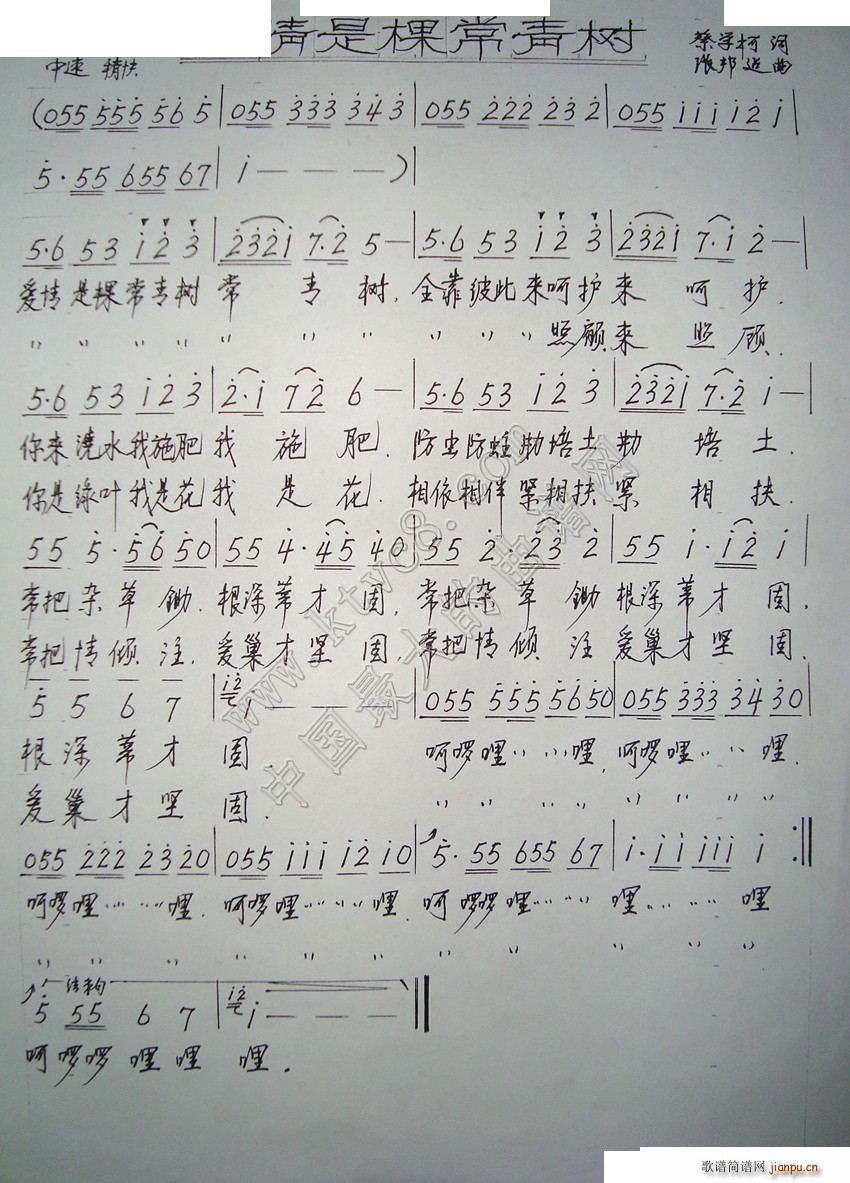 情是棵常青树
蔡学柯 词
中速 稍快
张邦运 曲
(055 555 56 5 | 055 333 34 3 | 055 222 23 2 | 055 111 12 1 |
5·55 655 67 | 1 — — — ) |
5·6 53 1 2 3 | 2321 7·2 5 — | 5·6 53 1 2 3 | 2321 7·1 2 — |
爱情是棵常青树 常 青 树, 全靠彼此来呵护 来 呵 护.
〃 〃 〃 〃 〃 〃 〃 〃 〃 〃 〃 照顾来 照 顾.
5·6 53 1 2 3 | 2·1 72 6 — | 5·6 53 1 2 3 | 2321 7·2 1 — |
你来浇水我施肥 我 施 肥. 防虫防蛀勤培土 勤 培 土.
你是绿叶我是花 我 是 花. 相依相伴紧相扶 紧 相 扶.
55 5·56 50 | 55 4·45 40 | 55 2·23 2 | 55 1·12 1 |
常把杂草锄. 根深蒂才固, 常把杂草锄 根深蒂才固.
常把情倾注, 爱巢才坚固, 常把情倾注 爱巢才坚固.
5 5 6 7 | 12 1 — — — | 055 555 5650 | 055 333 3430 |
根深蒂才固. 呵啰哩〃〃 〃〃〃哩, 呵啰哩〃〃〃 哩.
爱巢才坚固. 〃 〃 〃 〃 〃 〃 〃 〃 〃 〃
055 222 2320 | 055 111 1210 | 5·55 655 67 | 1·11 1111 1 :||
呵啰哩〃〃〃〃〃哩. 呵啰哩〃〃〃〃〃哩. 呵啰啰哩〃〃〃〃 哩〃〃〃〃〃 哩
〃 〃 〃 〃 〃 〃 〃 〃 〃 〃 〃 〃
结束句
5 55 6 7 | 12 1 — — — ||
呵啰啰哩哩 哩.
www.ktvc8.com
中国最大的曲谱网
歌谱简谱网 jianpu.cn